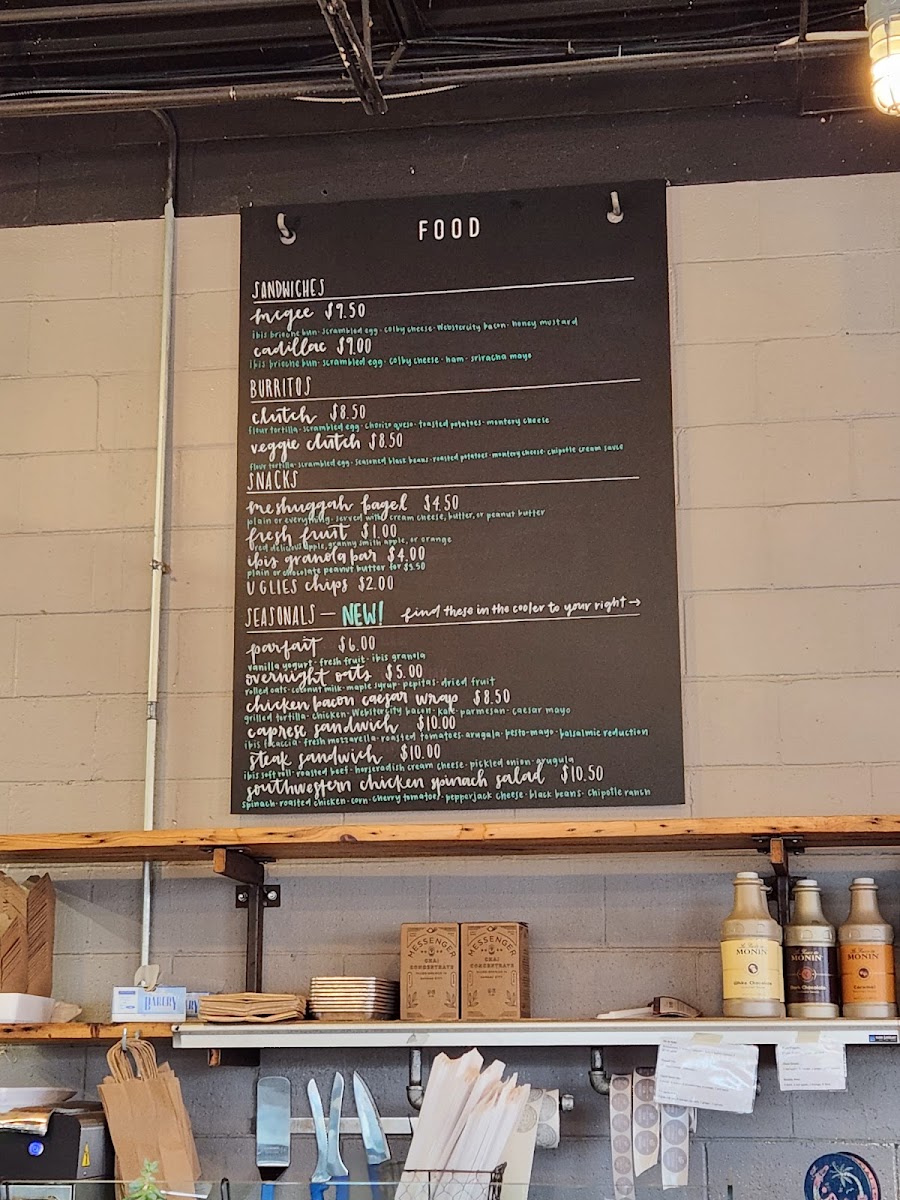 FOOD
SANDWICHES
mcgee $9.50
ibis brioche bun · scrambled egg · colby cheese · Webstercity bacon · honey mustard
cadillac $9.00
ibis brioche bun · scrambled egg · colby cheese · ham · sriracha mayo
BURRITOS
clutch $8.50
flour tortilla · scrambled egg · chorizo queso · toasted potatoes · montery cheese
veggie clutch $8.50
flour tortilla · scrambled egg · seasoned black beans · roasted potatoes · montery cheese · chipotle cream sauce
SNACKS
meshuggah bagel $4.50
plain or everything · served with cream cheese, butter, or peanut butter
fresh fruit $1.00
red delicious apple, granny smith apple, or orange
ibis granola bar $4.00
plain or chocolate peanut butter for $5.50
UGLIES chips $2.00
SEASONALS — NEW! find these in the cooler to your right →
parfait $6.00
vanilla yogurt · fresh fruit · ibis granola
overnight oats $5.00
rolled oats · coconut milk · maple syrup · pepitas · dried fruit
chicken bacon caesar wrap $8.50
grilled tortilla · chicken · Webstercity bacon · kale · parmesan · caesar mayo
caprese sandwich $10.00
ibis focaccia · fresh mozzarella · roasted tomatoes · arugala · pesto-mayo · balsalmic reduction
steak sandwich $10.00
ibis soft roll · roasted beef · horseradish cream cheese · pickled onion · arugula
southwestern chicken spinach salad $10.50
spinach · roasted chicken · corn · cherry tomatoes · pepperjack cheese · black beans · chipotle ranch
MESSENGER
CHAI
CONCENTRATE
MESSENGER
CHAI
CONCENTRATE
MONIN
White Chocolate
MONIN
Dark Chocolate
MONIN
Caramel
BAKERY